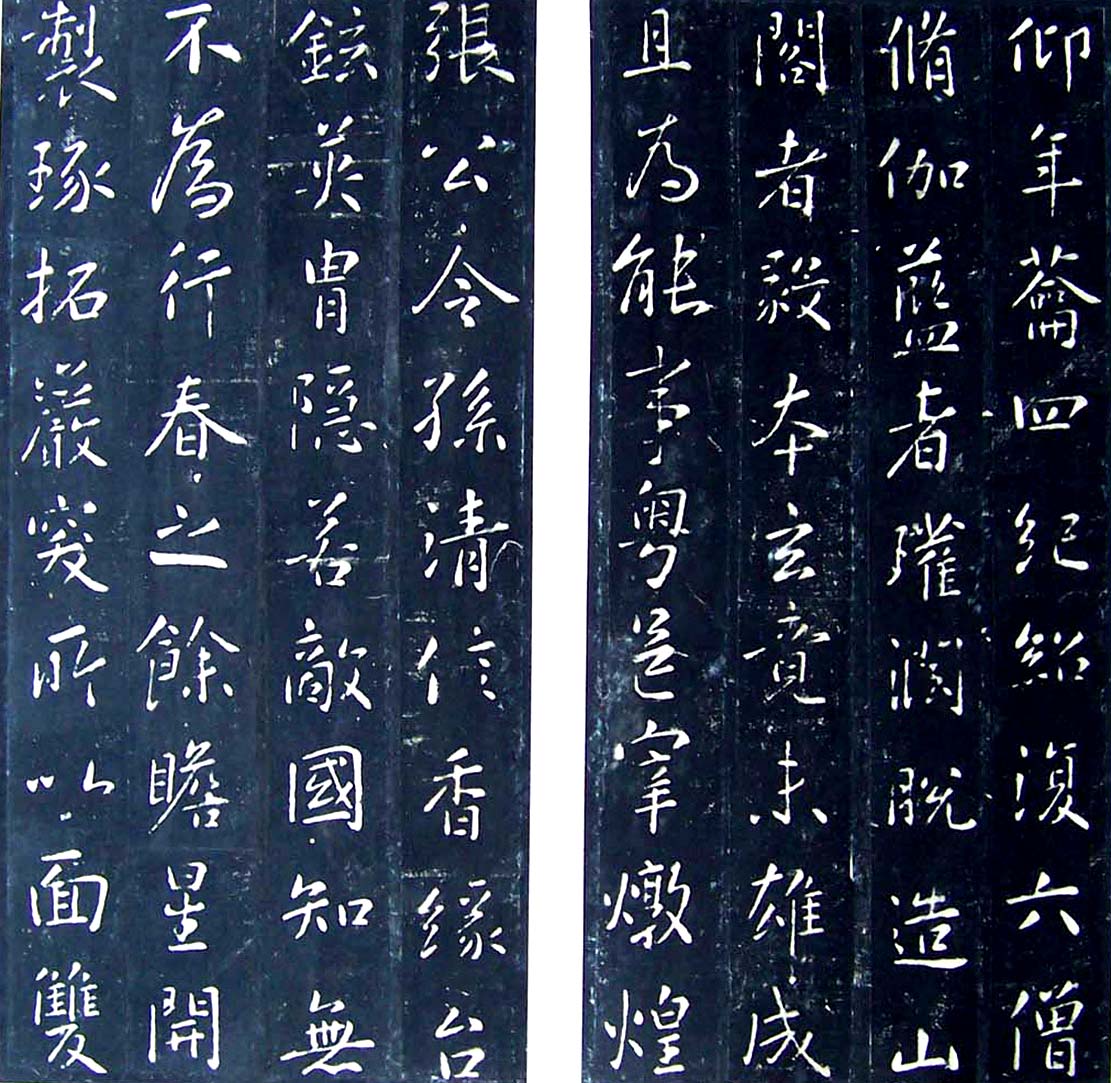 仰年蕣四紀紹復六僧
脩伽藍者㩴澗脱造山
閣者毅本玄竟未雄成
且為能事粤邑宰燉煌
張公令孫清信香緣台
鉉英胄隱若敵國知無
不為行春之餘瞻星開
製琢拓巖窔所以面雙